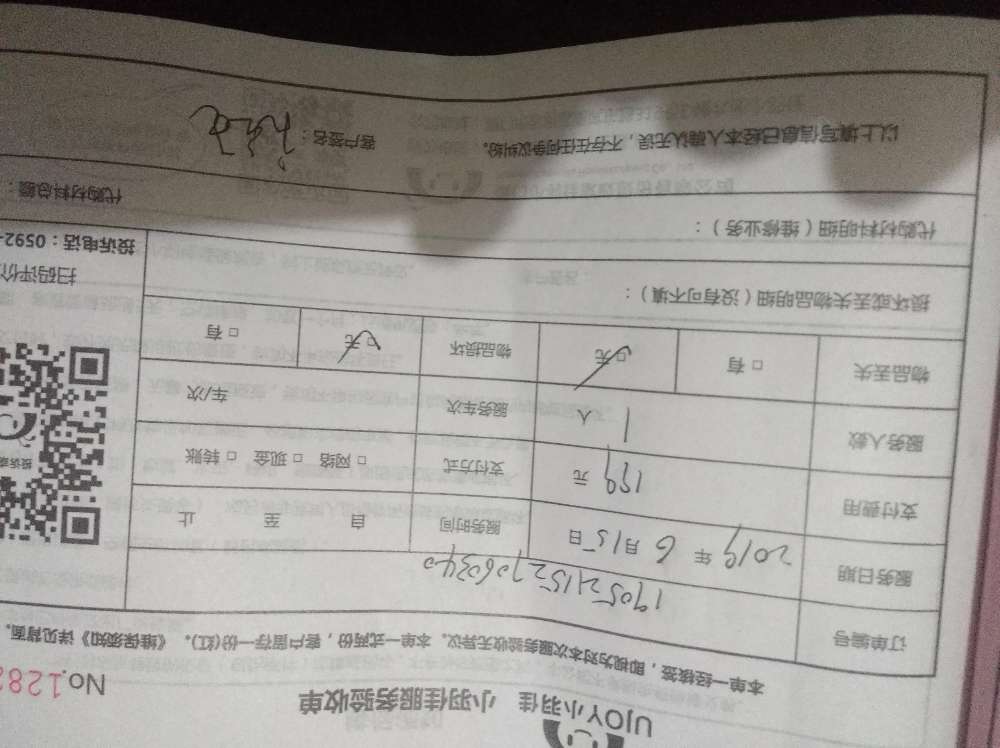 UJOY小羽佳 小羽佳服务验收单
No.128
本单一经核签，即视为对本次服务验收无异议。本单一式两份，客户留存一份(红)。《维保须知》详见背面。
订单编号 1905211527060340
服务日期 2019年6月15日 服务时间 自 至 止
支付费用 199元 支付方式 □ 网络 □ 现金 □ 转账
服务人数 1人 服务车次 车/次
物品丢失 □ 有 ☑ 无 物品损坏 ☑ 无 □ 有
损坏或丢失物品明细（没有可不填）：
代购材料明细（维修业务）：
代购材料总额：
以上填写信息已经本人确认无误，不存在任何争议纠纷。 客户签名：
扫码评价
投诉电话：0592-